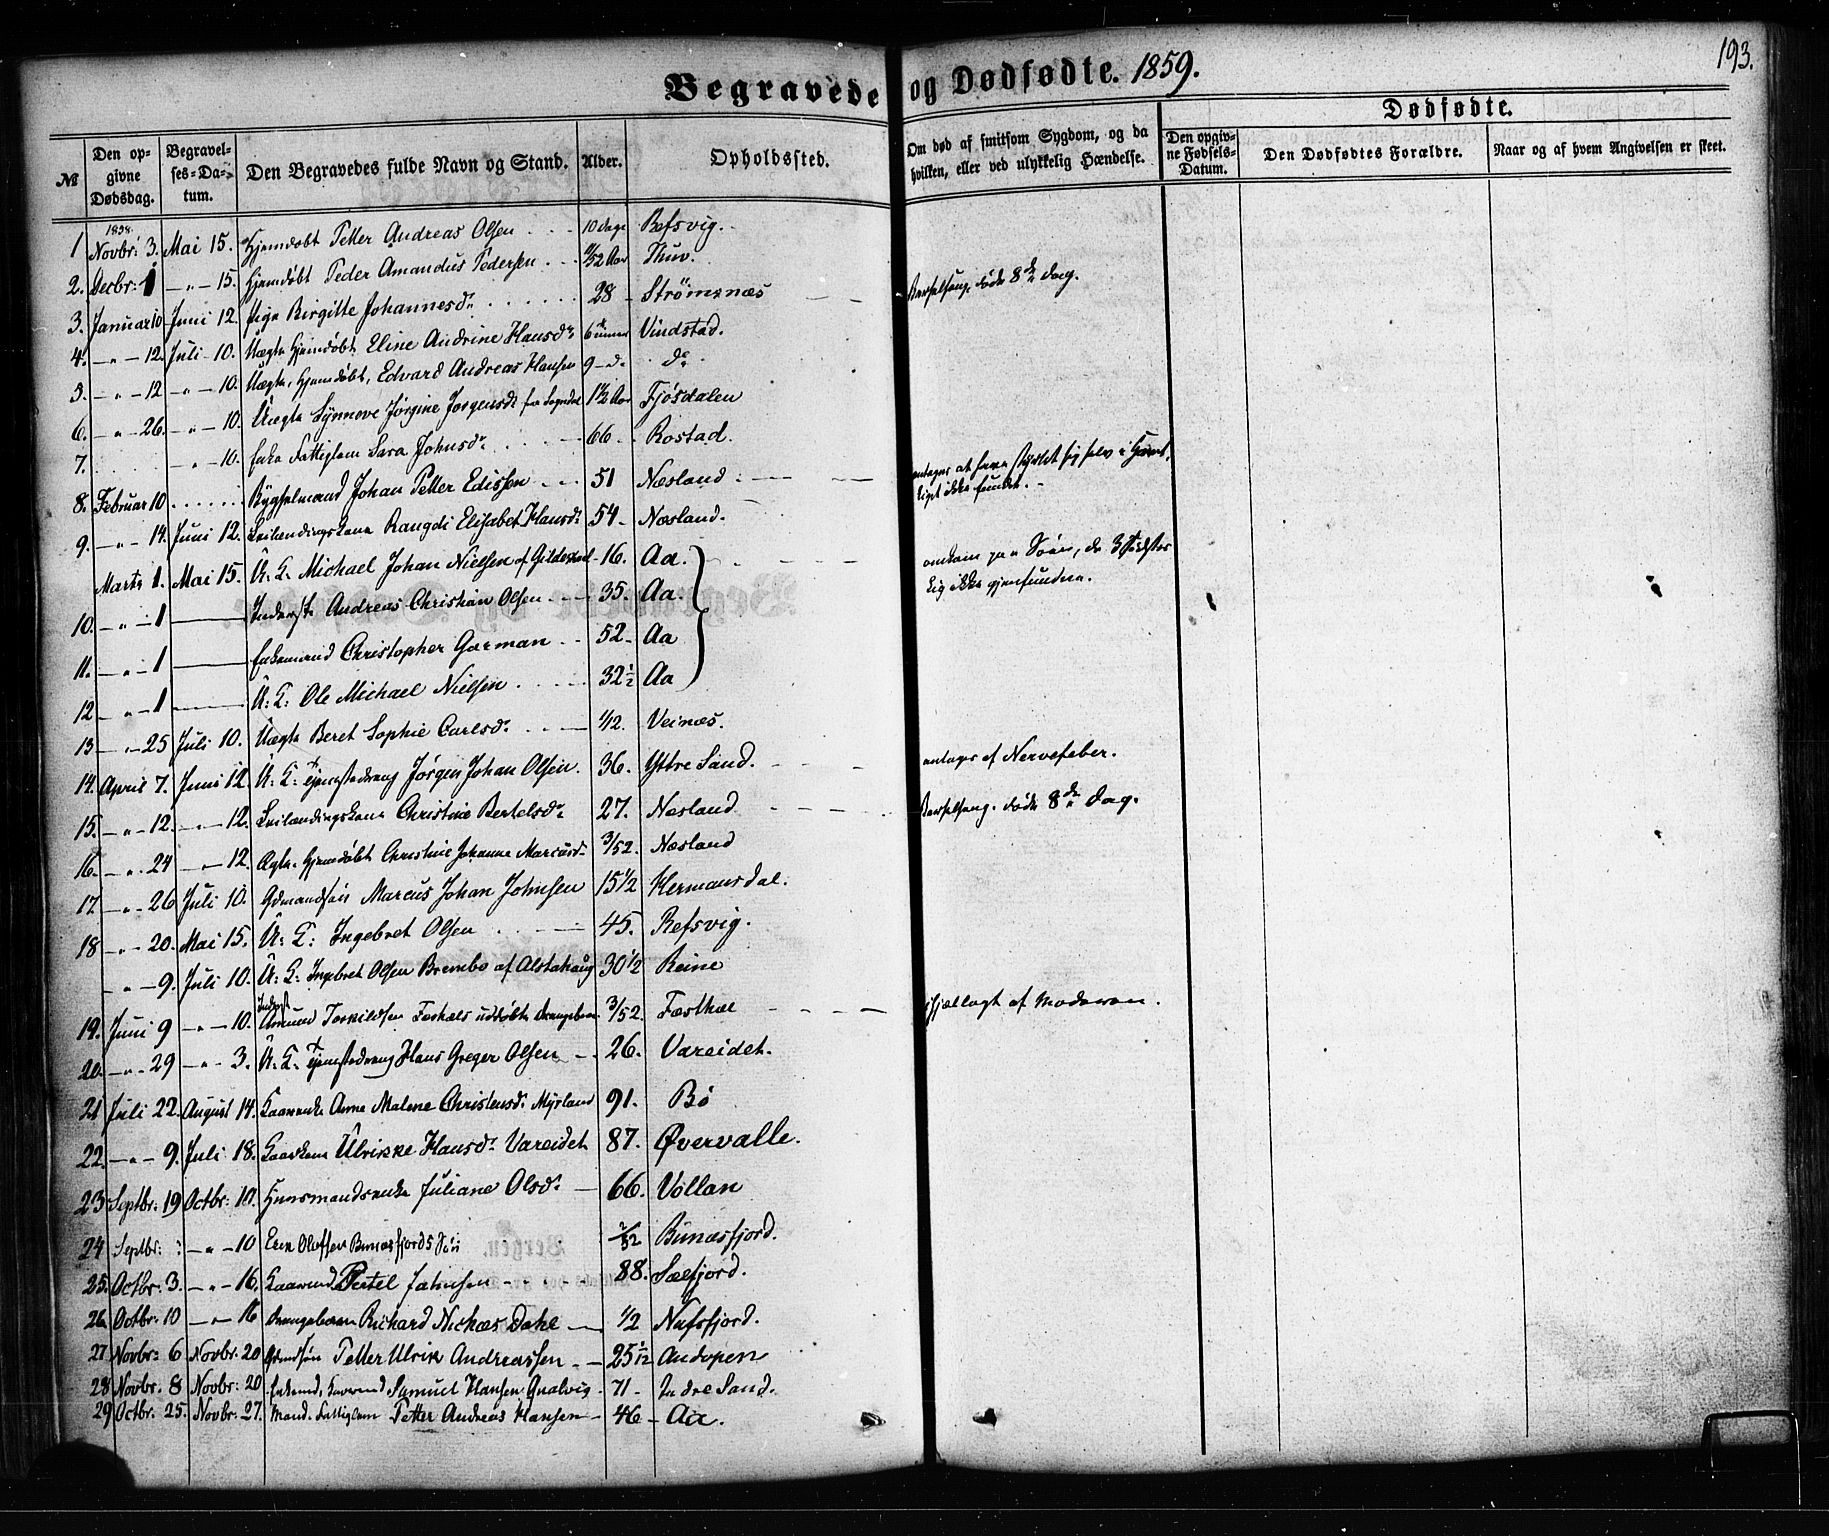 193.
Begravede og Dødfødte. 1859.
№ Den opgivne Dødsdag. Begravelses-Datum. Den Begravedes fulde Navn og Stand. Alder. Opholdssted. Om død af smitsom Sygdom, og da hvilken, eller ved ulykkelig Hændelse. Dødfødte. Den opgivne Fødsels-Datum. Den Dødfødtes Forældre. Naar og af hvem Angivelsen er skeet.
1858.
1 Novbr: 3. Mai 15. Hjemdøbt Petter Andreas Olsen 10 dage Refsvig.
2. Decbr: 1 — " — 15. Hjemdøbt Peder Amandus Pedersen /52 Aar Thuv.
3. Januar 10 Juni 12. Pige Birgitte Johannesdr 28 Strømsnæs Barselseng. døde 8de Dag.
4. — " — 12. Juli 10. Uægte Hjemdøbt Eline Andrine Hansdr 6 Vindstad.
5. — " — 12 — " — 10. Uægte, Hjemdøbt, Edvard Andreas Hansen 9 — d. do
6. — " — 26. — " — 10. Uægte Synnove Jørgine Jørgensdr fra Sogndal 1½ Aar Fjøsdalen
7. — " — 10. Enke Fattiglem Sara Johnsdr 66. Rostad.
8. Februar 10 Bygselmand Johan Petter Edissen 51 Næsland antages at have styrtet sig selv i Havet,
Liget ikke fundet.
9. — " — 14. Juni 12. Leilændingskone Rangdi Elisabet Hansdr 54 Næsland.
Marts 1. Mai 15. U: K: Michael Johan Nielsen af Gildeskaal 16. Aa. omkom paa Søen, de 3 sidstes
Lig ikke gjenfundne.
10. — " — 1 Inderst Andreas Christian Olsen 35. Aa.
11. — " — 1 Enkemand Christopher Garman 52. Aa
12 — " — 1 U: K: Ole Michael Nielsen 32½ Aa
13 — " — 25 Juli 10. Uægte Beret Sophie Carlsdr 1/12. Veinæs.
14. April 7. Juni 12. U: K: Tjenestedreng Jørgen Johan Olsen. 36. Yttre Sand. antages af Nervefeber.
15. — " — 12. — " — 12. Leilændingskone Christine Bertelsdr 27. Næsland Barselseng. døde 8de Dag.
16. — " — 24 — " — 12. Ægte Hjemdøbt Christine Johanne Marcusdr 3/52. Næsland
17. — " — 26 Juli 10. Gdmandsøn Marcus Johan Johnsen 15½ Hermansdal.
18 — " — 20. Mai 15. U: K: Ingebret Olsen 45. Refsvig.
— " — 9. Juli 10. U: K: Ingebret Olsen Brembo af Alstahaug 30½ Reine
19. Juni 9 — " — 10. Inderst Amund Torkildsen Forhæls udøbte Drengebarn 3/52. Fæsthæl ihjellagt af Moderen.
20. — " — 29 — " — 3. U: K: Tjenestedreng Hans Greger Olsen 26. Vareidet.
21 Juli 22. August 14. Kaarenke Anne Malene Christensdr Myrland 91. Bø
22. — " — 9. Juli 18. Kaarkone Ulrikke Hansdr Vareidet 87. Øvervalle.
23 Septbr: 19 Octbr: 10. Huusmandsenke Juliane Olsdr 66. Vollan
24 Septbr: — " — 10 Erik Oluffsen Bunæsfjords Søn 2/52 Bunæsfjord.
25. Octbr: 3. — " — 16. Kaarmd Pertel Jahnsen 88. Sælfjord.
26. Octbr: 10 — " — 16 Drengebarn Richard Nickæs Dahl ½ Nufsfjord.
27 Novbr: 6 Novbr: 20 Gdmdsøn Petter Ulrik Andreassen 25 1/12 Andopen
28 Novbr. 8 Novbr: 20 Enkemd, Kaarmd Samuel Hansen Qvalvig 71 Indre Sand.
29 Octbr. 25. Novbr. 27. Mand. Fattiglem Petter Andreas Hansen 46 Aa.